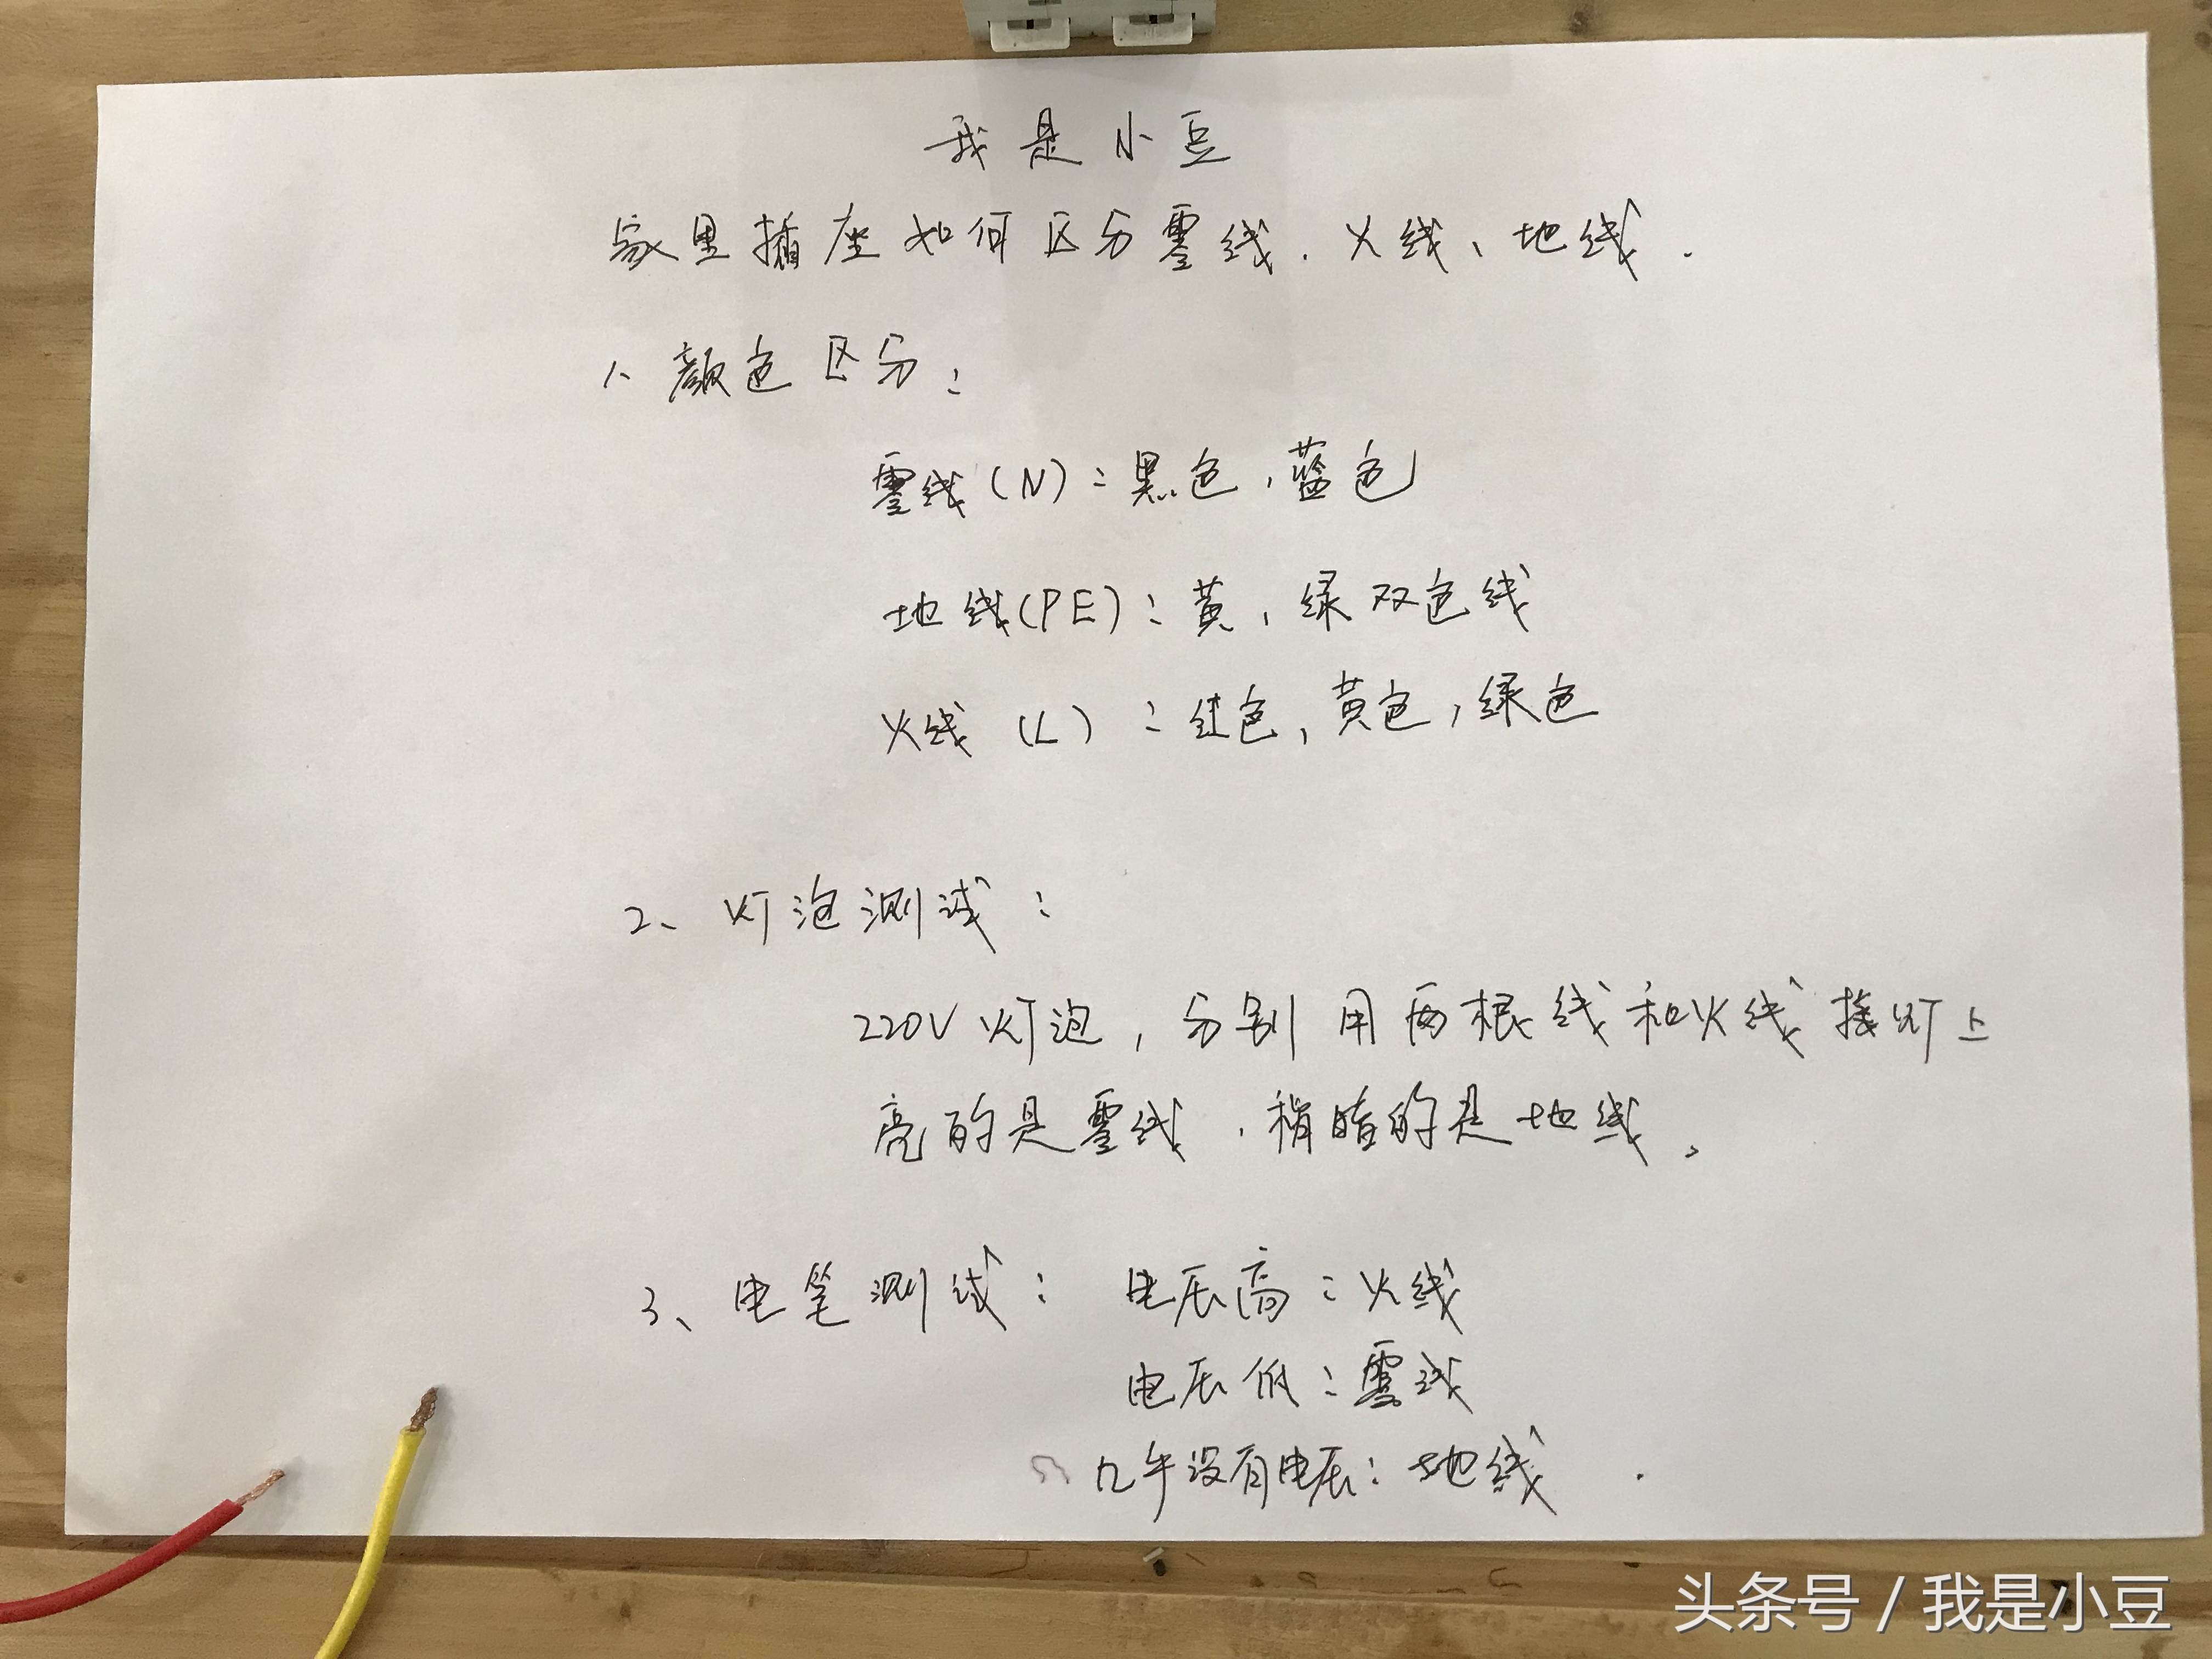 我是小豆
家里插座如何区分零线、火线、地线.
1、颜色区分:
零线(N):黑色,蓝色
地线(PE):黄,绿双色线
火线(L):红色,黄色,绿色
2、灯泡测试:
220V灯泡,分别用两根线和火线接灯上
亮的是零线,稍暗的是地线。
3、电笔测试:电压高:火线
电压低:零线
几乎没有电压:地线.
头条号 / 我是小豆